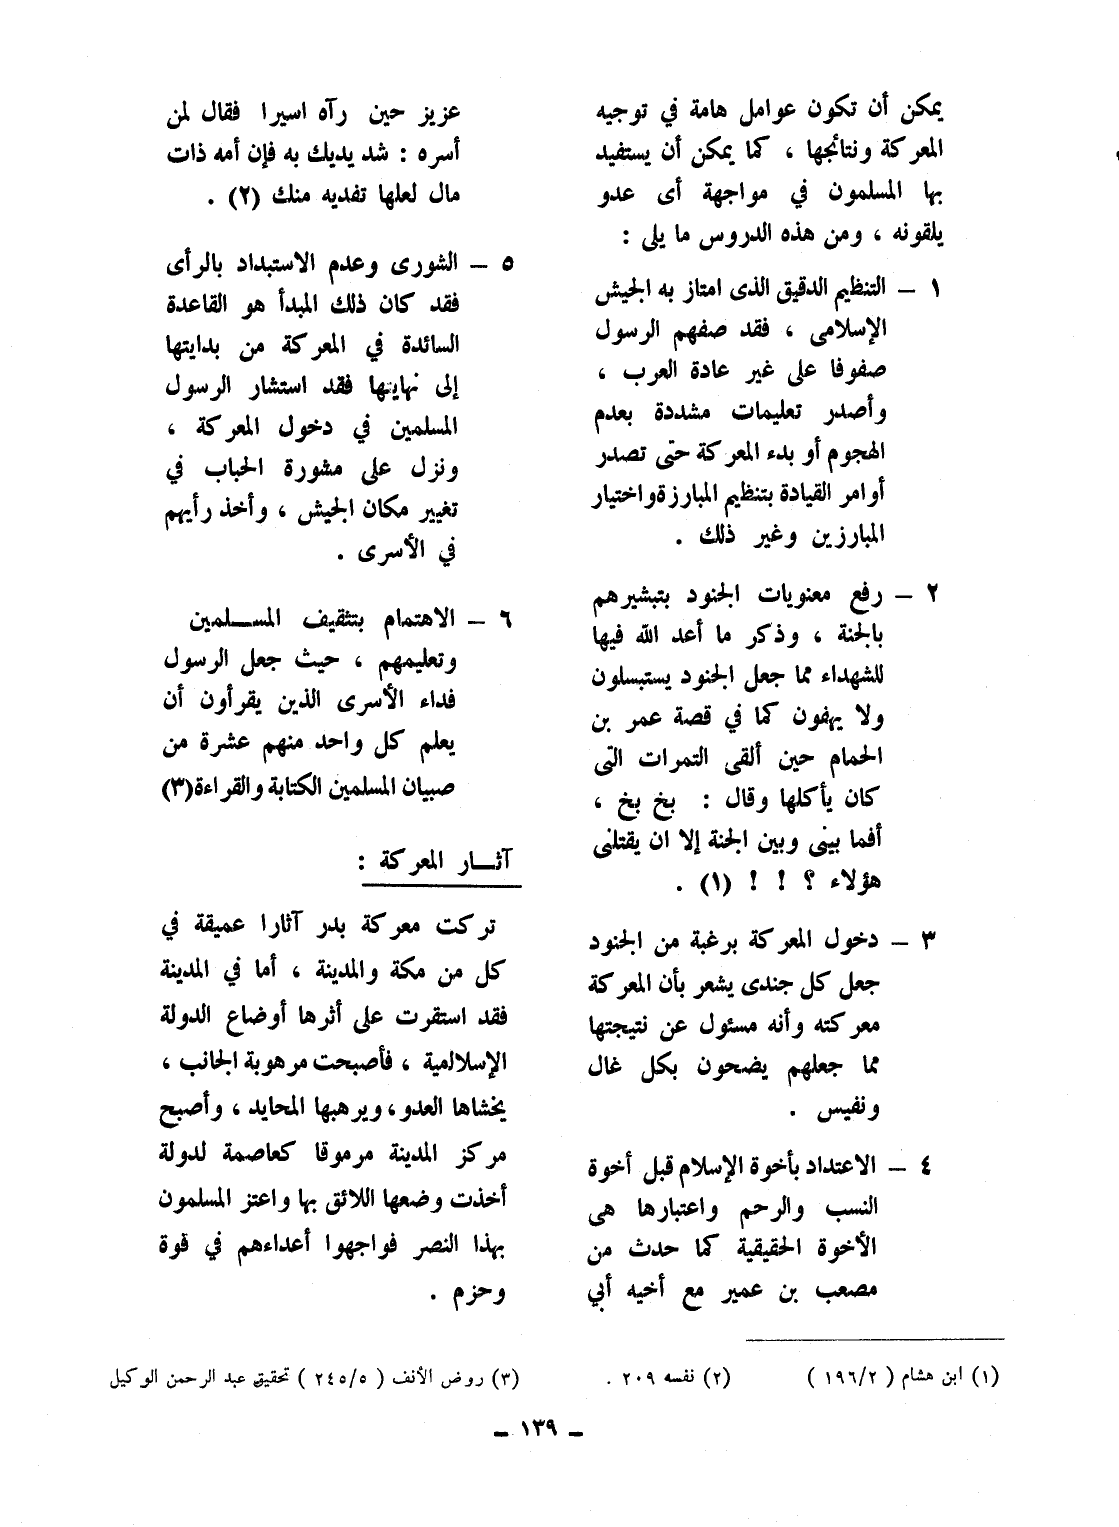 يمكن أن تكون عوامل هامة في توجيه
المعركة ونتائجها ، كما يمكن أن يستفيد
بها المسلمون في مواجهة أى عدو
يلقونه ، ومن هذه الدروس ما يلى :
١ – التنظيم الدقيق الذى امتاز به الجيش
الإسلامى ، فقد صفهم الرسول
صفوفا على غير عادة العرب ،
وأصدر تعليمات مشددة بعدم
الهجوم أو بدء المعركة حتى تصدر
أوامر القيادة بتنظيم المبارزة واختيار
المبارزين وغير ذلك .
٢ – رفع معنويات الجنود بتبشيرهم
بالجنة ، وذكر ما أعد الله فيها
للشهداء مما جعل الجنود يستبسلون
ولا يهفون كما في قصة عمر بن
الحمام حين ألقى التمرات التى
كان يأكلها وقال : بخ بخ ،
أفما بينى وبين الجنة إلا ان يقتلنى
هؤلاء ؟ ! ! (١) .
٣ – دخول المعركة برغبة من الجنود
جعل كل جندى يشعر بأن المعركة
معركته وأنه مسئول عن نتيجتها
مما جعلهم يضحون بكل غال
ونفيس .
٤ – الاعتداد بأخوة الإسلام قبل أخوة
النسب والرحم واعتبارها هى
الأخوة الحقيقية كما حدث من
مصعب بن عمير مع أخيه أبي
عزيز حين رآه اسيرا فقال لمن
أسره : شد يديك به فإن أمه ذات
مال لعلها تفديه منك (٢) .
٥ – الشورى وعدم الاستبداد بالرأى
فقد كان ذلك المبدأ هو القاعدة
السائدة في المعركة من بدايتها
إلى نهايتها فقد استشار الرسول
المسلمين في دخول المعركة ،
ونزل على مشورة الحباب في
تغيير مكان الجيش ، وأخذ رأيهم
في الأسرى .
٦ – الاهتمام بتثقيف المســلمين
وتعليمهم ، حيث جعل الرسول
فداء الأسرى الذين يقرأون أن
يعلم كل واحد منهم عشرة من
صبيان المسلمين الكتابة والقراءة(٣)
آثــار المعركة :
تركت معركة بدر آثارا عميقة في
كل من مكة والمدينة ، أما في المدينة
فقد استقرت على أثرها أوضاع الدولة
الإسلالمية ، فأصبحت مرهوبة الجانب ،
يخشاها العدو ، ويرهبها المحايد ، وأصبح
مركز المدينة مرموقا كعاصمة لدولة
أخذت وضعها اللائق بها واعتز المسلمون
بهذا النصر فواجهوا أعداءهم في قوة
وحزم .
(١) ابن هشام ( ١٩٦/٢ ) (٢) نفسه ٢٠٩ . (٣) روض الأنف ( ٢٤٥/٥ ) تحقيق عبد الرحمن الوكيل
– ١٣٩ –